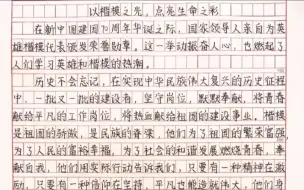 以楷模之光，点亮生命之彩
在新中国建国70周年华诞之际，国家领导人亲自为英
雄楷模代表颁发荣誉勋章。这一举动振奋人心，也燃起了
人们学习英雄和楷模的热潮。
历史不会忘记，在实现中华民族伟大复兴的历史征程
中，一批又一批的建设者，坚守岗位，默默奉献，将青春
献给平凡的工作岗位，将热血献给祖国的建设事业，楷模
是祖国的骄傲，是民族的脊梁，他们为了祖国的繁荣富强
为了人民的富裕幸福，为了社会的和谐发展燃烧青春，奉
献自我，他们用实际行动告诉我们，只要有一种精神在激
励，只要有一种信仰在坚持，平凡也能造就伟大，他们身